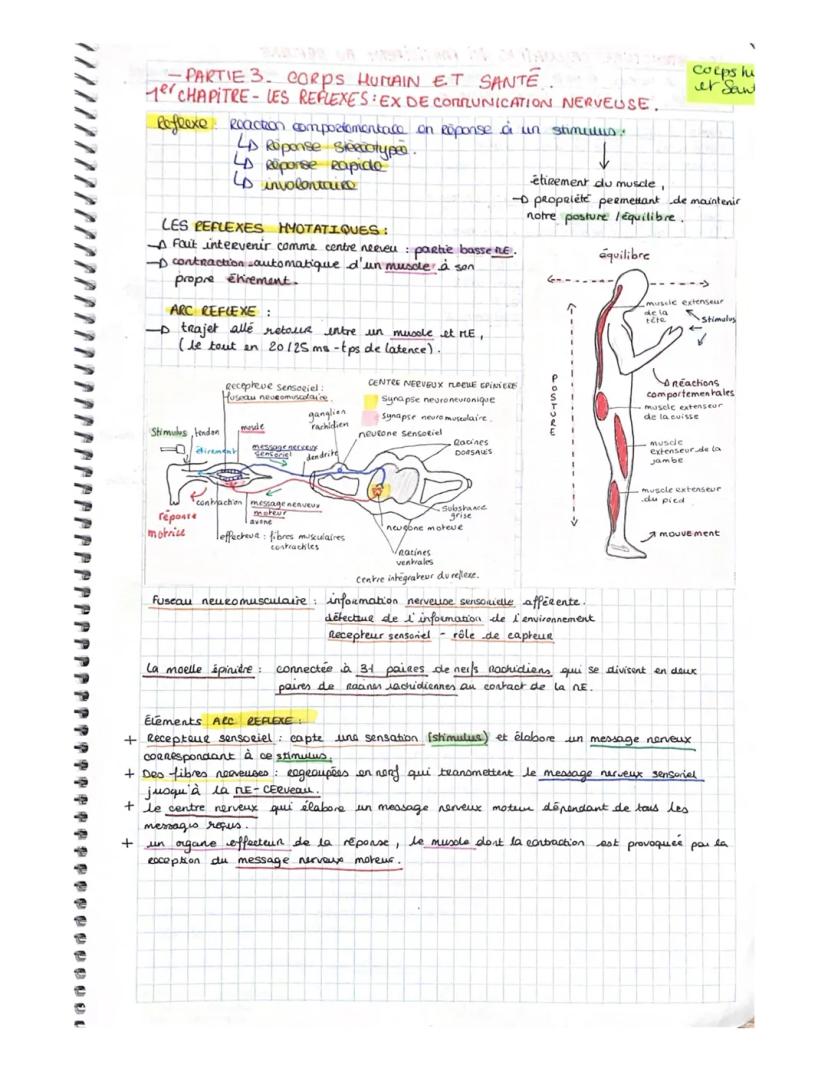 - PARTIE 3. CORPS HUMAIN ET SANTÉ.
1er CHAPITRE - LES REFLEXES : EX DE COMMUNICATION NERVEUSE.
Corps hu
et Sant
Reflexe : Reaction comportementale en réponse à un stimulus :
↳ Réponse Stéréotypé.
↳ Réponse Rapide
↳ involontaire
étirement du muscle,
→ propriété permettant de maintenir
notre posture / équilibre.
LES REFLEXES MYOTATIQUES :
→ Fait intervenir comme centre nerveu : partie basse ME.
→ contraction automatique d'un muscle à son
propre étirement.
ARC REFLEXE :
→ trajet allé retour entre un muscle et ME,
( le tout en 20/25 ms - tps de latence).
Recepteur sensoriel :
fuseau neuromusculaire.
CENTRE NERVEUX MOELLE EPINIERE
Synapse neuroneuronique
Synapse neuromusculaire.
ganglion
rachidien
neurone sensoriel
Racines
DORSALES
Stimulus
tendon
muscle
étirement
message nerveux
sensoriel
dendrite
contraction
message nerveux
moteur
axone
réponse
motrice
effecteur : fibres musculaires
contractiles
Substance
grise
neurone moteur
Racines
ventrales
Centre intégrateur du reflexe.
équilibre
POSTURE
muscle extenseur
de la
tête
Stimulus
Réactions
comportementales
muscle extenseur
de la cuisse
muscle
extenseur de la
jambe
muscle extenseur
du pied
mouvement
Fuseau neuromusculaire : information nerveuse sensorielle afférente.
détecteur de l'information de l'environnement
Recepteur sensoriel - rôle de capteur
La moelle épinière : connectée à 31 paires de nerfs rachidiens qui se divisent en deux
paires de racines rachidiennes au contact de la ME.
Éléments ARC REFLEXE :
+ Recepteur sensoriel : capte une sensation (stimulus) et élabore un message nerveux
correspondant à ce stimulus.
+ Des fibres nerveuses : regroupées en nerf qui transmettent le message nerveux sensoriel
jusqu'à la ME - CERVEAU.
+ le centre nerveux qui élabore un message nerveux moteur dépendant de tous les
messages reçus.
+ un organe effecteur de la réponse, le muscle dont la contraction est provoquée par la
reception du message nerveux moteur.